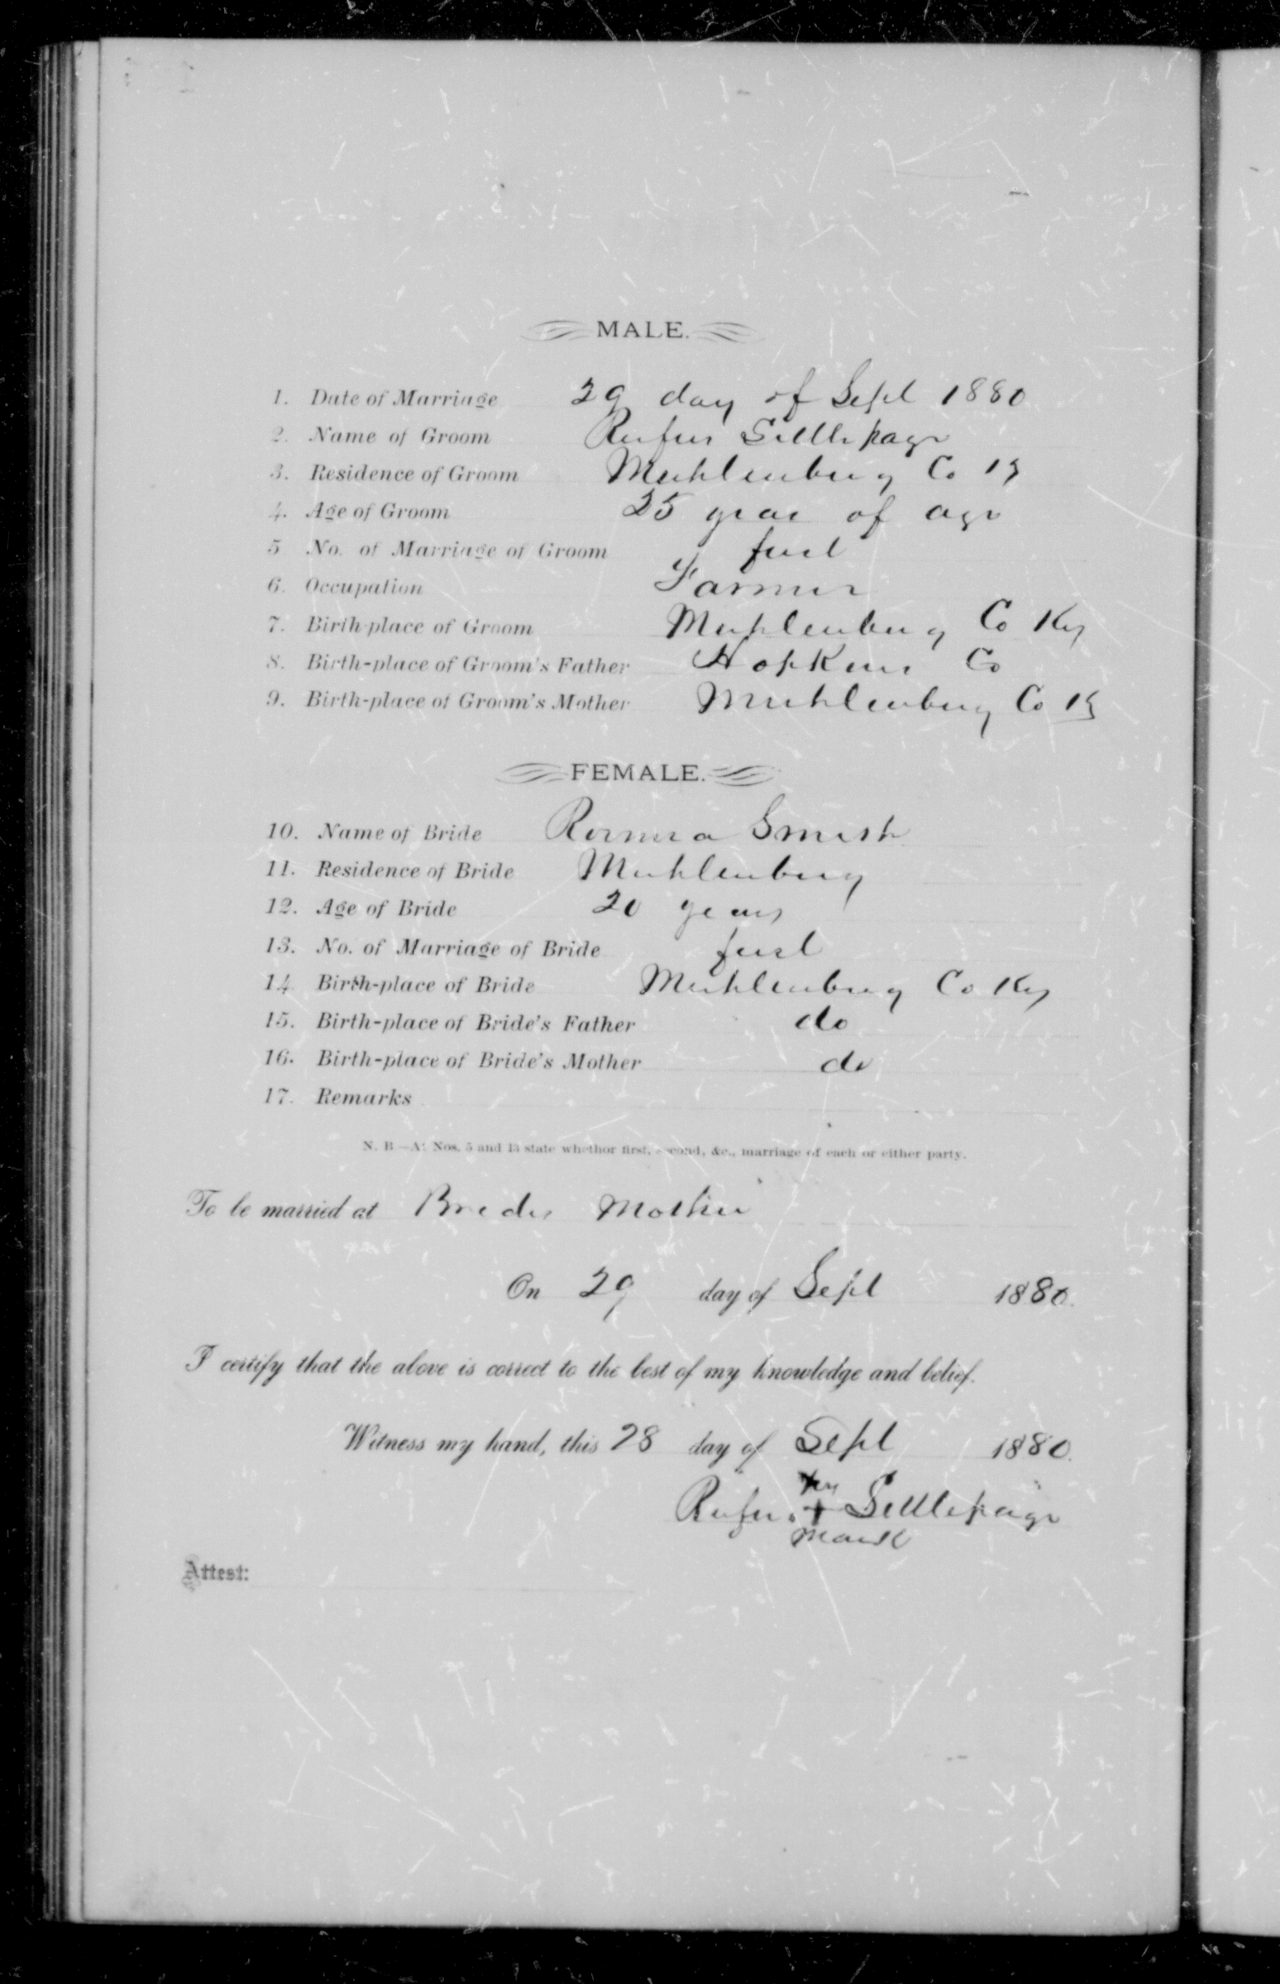 MALE.
1. Date of Marriage 29 day of Sept 1880
2. Name of Groom Rufus Settlepage
3. Residence of Groom Muhlenburg Co Ky
4. Age of Groom 25 year of age
5 No. of Marriage of Groom first
6. Occupation Farmer
7. Birth-place of Groom Muhlenburg Co Ky
8. Birth-place of Groom's Father Hopkins Co
9. Birth-place of Groom's Mother Muhlenburg Co Ky
FEMALE.
10. Name of Bride Smith
11. Residence of Bride Muhlenburg
12. Age of Bride 20 years
13. No. of Marriage of Bride first
14 Birth-place of Bride Muhlenburg Co Ky
15. Birth-place of Bride's Father do
16. Birth-place of Bride's Mother do
17. Remarks
N. B.—At Nos. 5 and 13 state whether first, second, &c., marriage of each or either party.
To be married at Brides Mother
On 29 day of Sept 1880.
I certify that the above is correct to the best of my knowledge and belief.
Witness my hand, this 28 day of Sept 1880.
his
Rufus + Settlepage
mark
Attest: